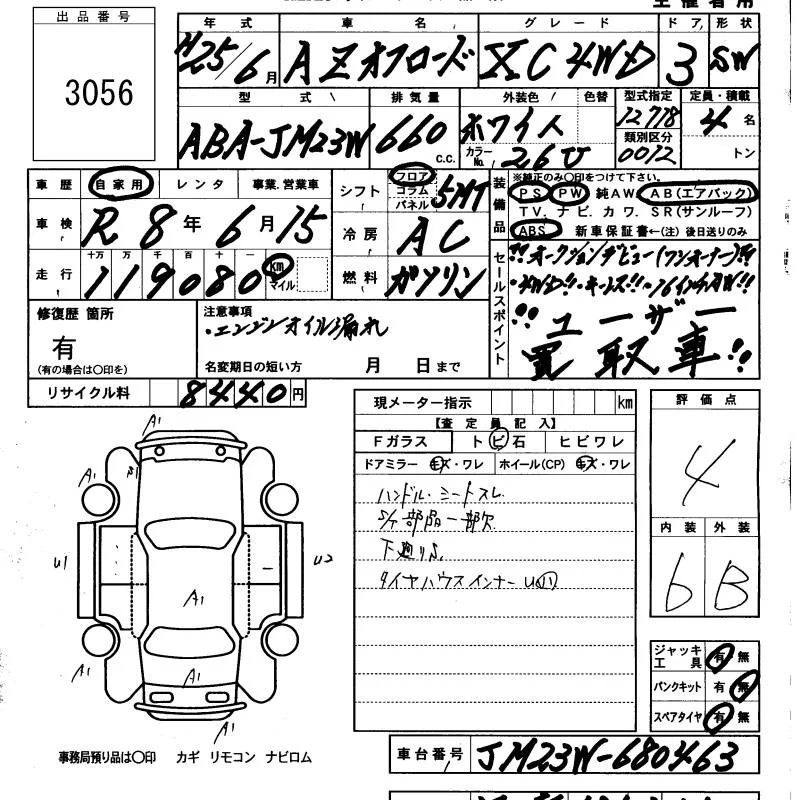 出品番号
3056
年式 車名 グレード ドア 形状
H25/6月 AZオフロード XC 4WD 3 SW
型式 排気量 外装色 色替 型式指定 定員・積載
12778
ABA-JM23W 660c.c. ホワイト カラーNo. 26U 類別区分 0012 4名
トン
車歴 自家用 レンタ 事業.営業車
車検 R8年6月15
走行 十万 万 千 百 十 一
119080 km マイル
シフト フロア コラム パネル 5MT
冷房 AC
燃料 ガソリン
装備品
※純正のみ〇印をつけて下さい。
PS PW 純AW AB(エアバック)
TV. ナビ. カワ. SR(サンルーフ)
ABS 新車保証書←(注)後日送りのみ
セールスポイント
!!オークションデビュー(ワンオーナー)!!
・4WD!!・キーレス!!・16インチAW!!
!!ユーザー
買取車!!
修復歴 箇所
有
(有の場合は〇印を)
注意事項
・エンジンオイル漏れ
名変期日の短い方 月 日まで
リサイクル料 8440円
現メーター指示 km
【査定員記入】
Fガラス トビ石 ヒビワレ
ドアミラー キズ・ワレ ホイール(CP) キズ・ワレ
ハンドル・シートスレ
S/T部品一部欠
下廻りS
タイヤハウスインナー U小
評価点
4
内装 外装
6 B
ジャッキ工具 有 無
パンクキット 有 無
スペアタイヤ 有 無
A1
A1
A1
U1
U2
A1
A1
A1
A1
事務局預り品は〇印 カギ リモコン ナビロム
車台番号 JM23W-680463